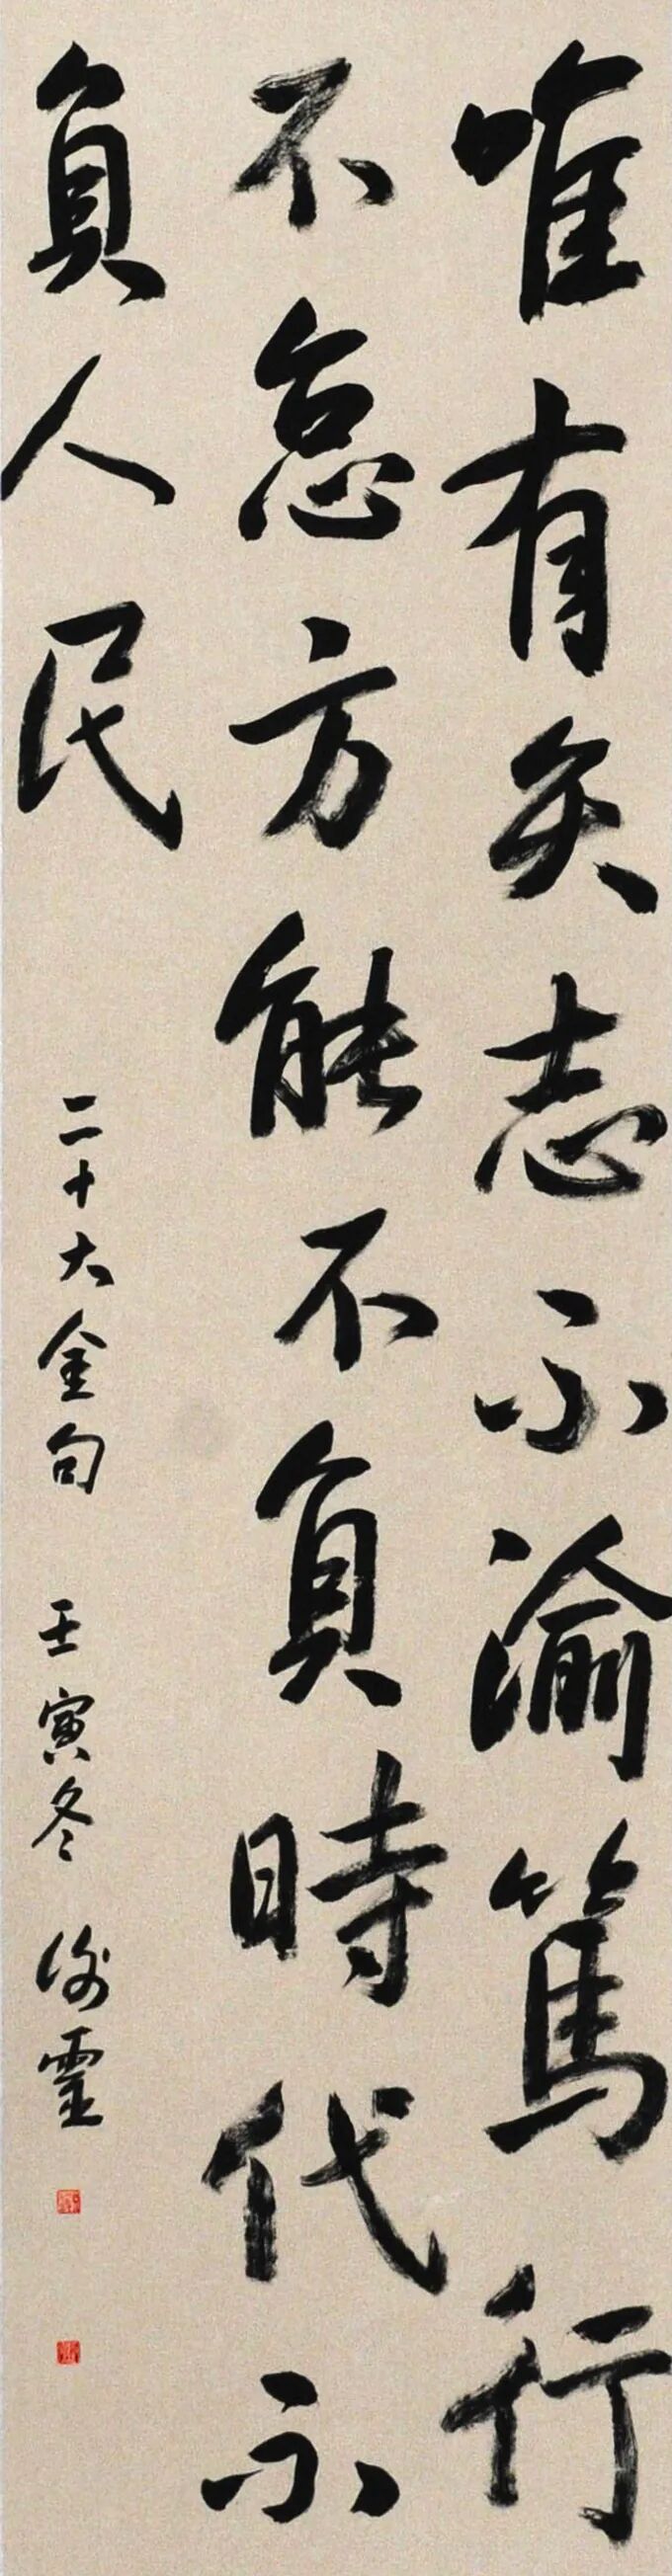 唯有矢志不渝篤行
不怠方能不負時代不
負人民
二十大金句 壬寅冬 徐靈